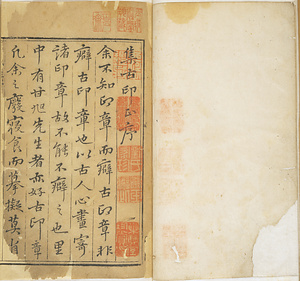 集古印正序
余不知印章而癖古印章非
癖古印章也以古人心畫寄
諸印章故不能不癖之也里
中有甘旭先生者亦好古印章
凡余之廢寢食而摹擬莫自